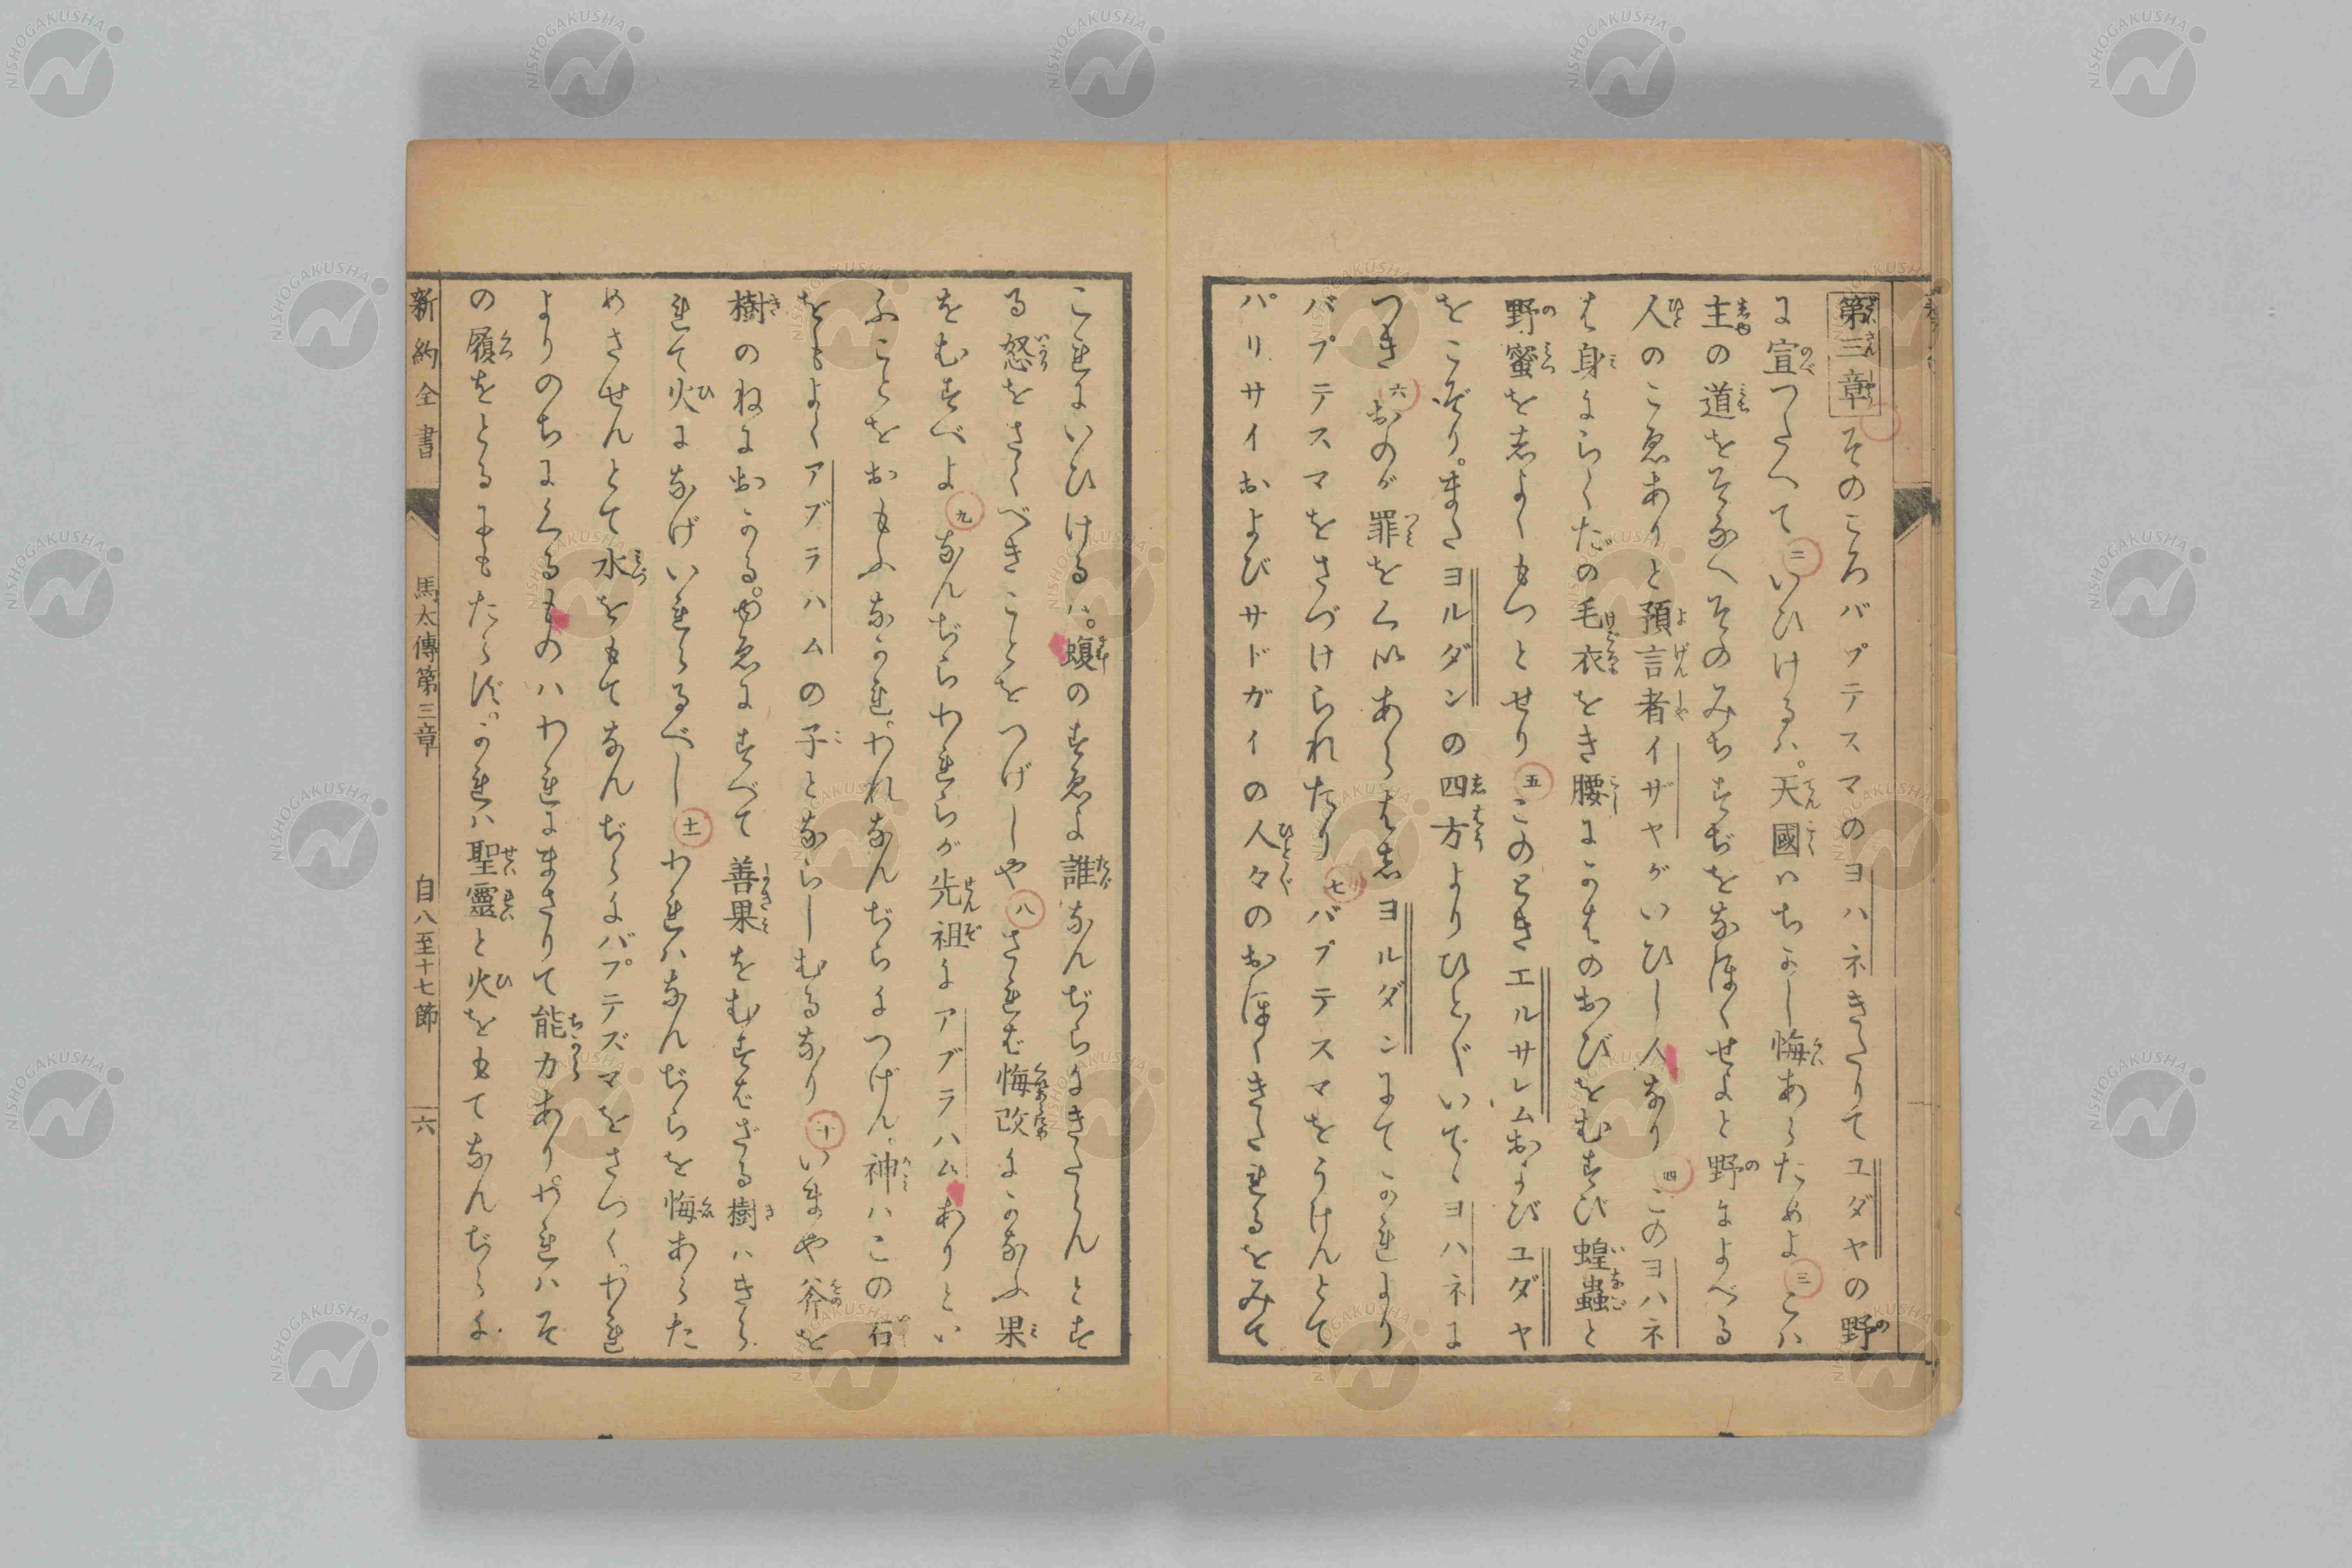 第三章そのころバプテスマのヨハネきたりてユダヤの野
に宣つたへて二いひけるハ。天國ハちかし悔あらためよ三こハ
主の道をそなへそのみちすぢをなほくせよと野によべる
人のこゑありと預言者イザヤがいひし人なり四このヨハネ
は身にらくだの毛衣をき腰にかはのおびをむすび蝗蟲と
野蜜をしよくもつとせり五このときエルサレムおよびユダヤ
をこぞり。またヨルダンの四方よりひと〴〵いでゝヨハネに
つき六おのが罪をくいあらはしヨルダンにてかれより
バプテスマをさづけられたり七バプテスマをうけんとて
パリサイおよびサドガイの人々のおほくきたれるをみて
これにいひけるハ。蝮のすゑよ誰なんぢらにきたらんとす
る怒をさくべきことをつげしや八されば悔改にかなふ果
をむすべよ九なんぢらわれらが先祖にアブラハムありとい
ふことをおもふなかれ。われなんぢらにつげん。神ハこの石
をもよくアブラハムの子とならしむるなり十いまや斧を
樹のねにおかる。ゆゑにすべて善果をむすばざる樹ハきら
れて火になげいれらるべし十一われハなんぢらを悔あらた
めさせんとて水をもてなんぢらにバプテズマをさづく。われ
よりのちにくるものハわれにまさりて能力あり。われハそ
の履をとるにもたらず。かれハ聖靈と火をもてなんぢらに
新約全書 馬太傳第三章 自八至十七節 六
NISHOGAKUSHA